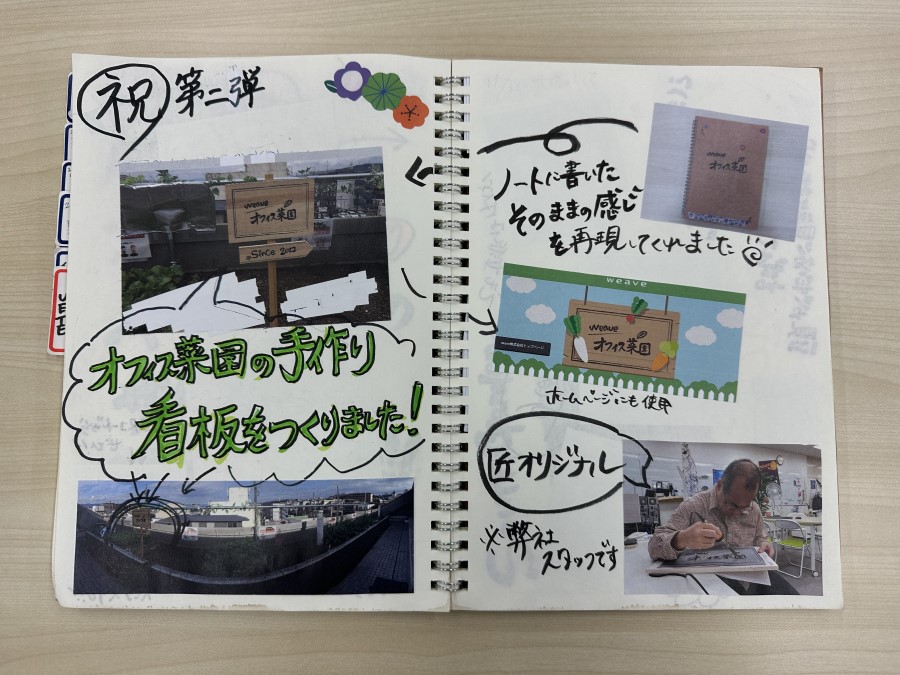 祝 第二弾
weave
オフィス菜園
Since 2012
オフィス菜園の手作り
看板をつくりました!
weave
オフィス菜園
ノートに書いた
そのままの感じ
を再現してくれました
weave
weave
オフィス菜園
ホームページにも使用
匠オリジナル
※弊社
スタッフです